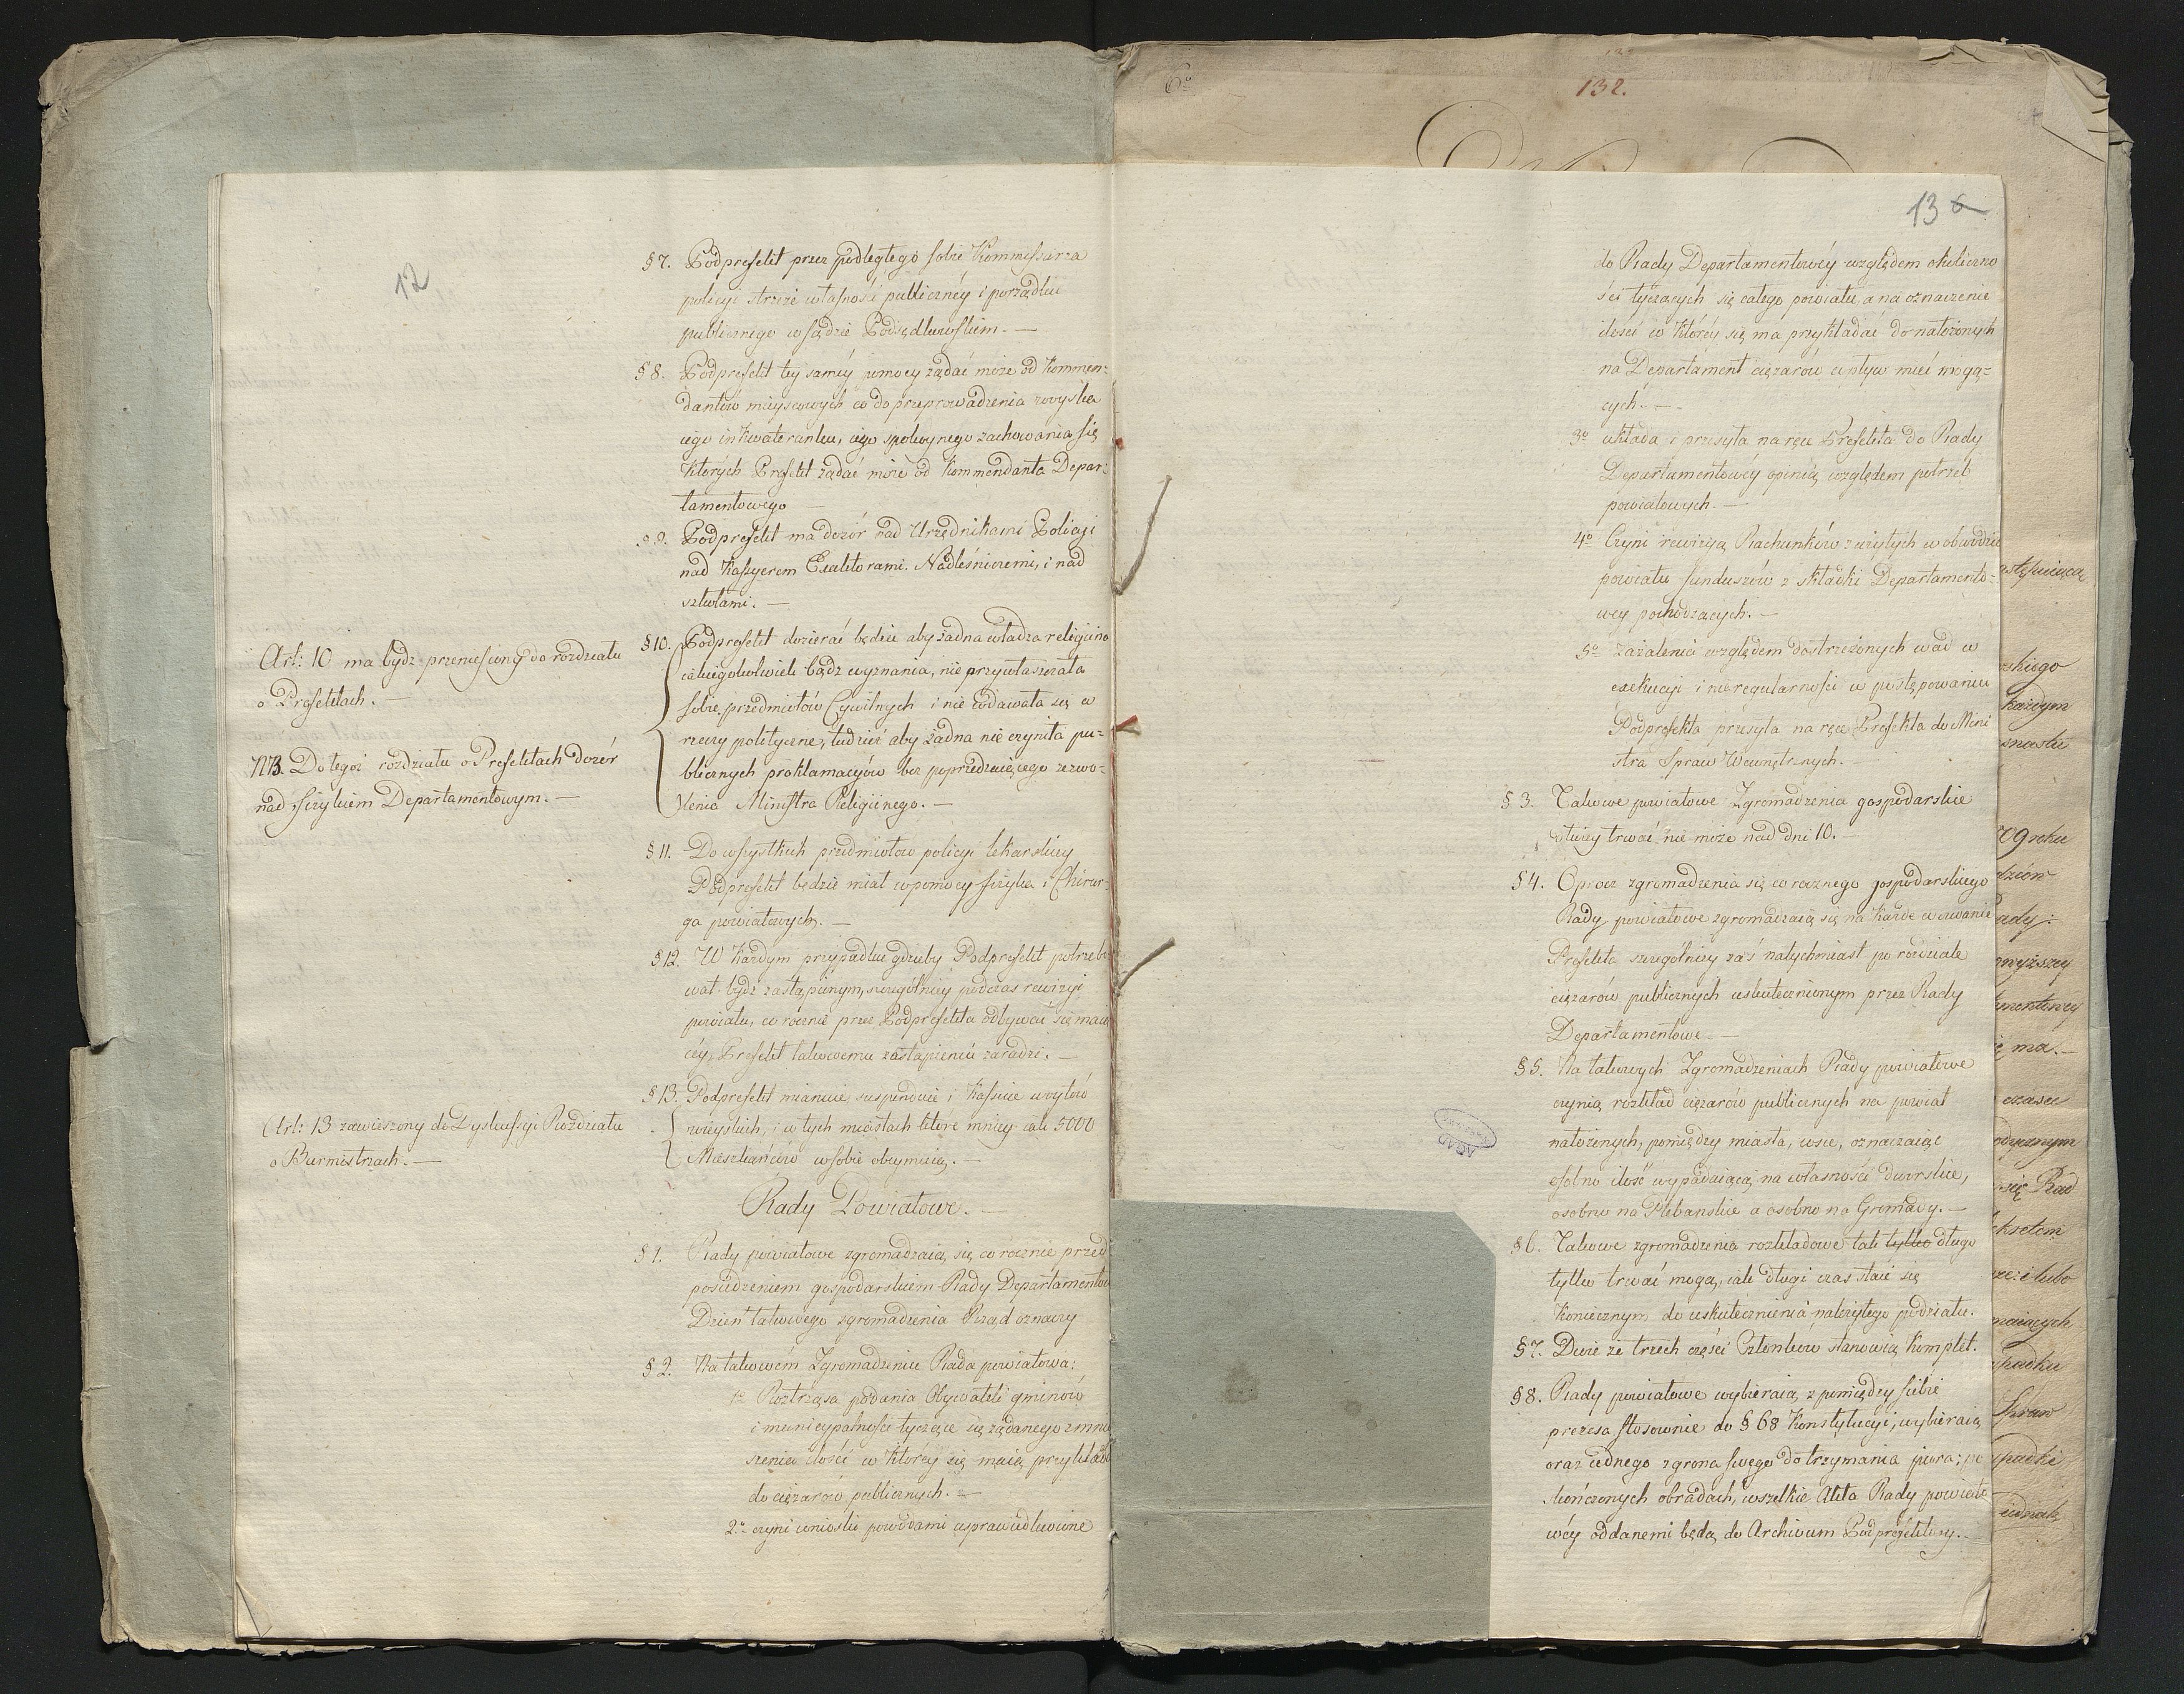 12
§ 7. Podprefekt przez podległego sobie Kommissarza
policyi strzeże własności publicznéy i porządku
publicznego w sądzie Podsędkowskim. —
§ 8. Podprefekt téy saméy pomocy żądać może od Kommen-
dantów mieyscowych co do przeprowadzenia woyska
iego inkwaterunku, iego spokoynego zachowania się
których Prefekt żądać może od Kommendanta Depar-
tamentowego —
§ 9. Podprefekt ma dozór nad Urzędnikami Policyi
nad Kassyerem Exaktorami. Nadleśniczemi, i nad
szkołami. —
Art: 10 ma bydz przeniesiony do rozdziału
o Prefektach. —
NB. Do tegoż rozdziału o Prefektach dozór
nad fizykiem Departamentowym. —
§ 10. Podprefekt dozierać będzie aby żadna władza religiina
iakiegokolwiek bądź wyznania, nie przywłaszczała
sobie przedmiotów Cywilnych i nie wdawała się w
rzeczy polityczne, tudzież aby żadna nie czyniła pu-
blicznych proklamacyów bez poprzedzaiącego zezwo-
lenia Ministra Religiinego. —
§ 11. Do wszystkich przedmiotów policyi lekarskiey
Podprefekt będzie miał w pomocy fizyka i Chirur-
ga powiatowych. —
§ 12. W każdym przypadku gdzieby Podprefekt potrzebo
wał bydź zastąpionym, szczególniey podczas rewizyi
powiatu, co rocznie przez Podprefekta odbywać się maią
céy, Prefekt takowemu zastąpieniu zaradzi. —
Art: 13 zawieszony do Dyskussyi Rozdziału
o Burmistrzach. —
§ 13. Podprefekt mianuie, suspenduie i Kassuie woytów
wieyskich, i w tych miastach które mniey iak 5000
Mieszkańców w sobie obeymuią. —
Rady Powiatowe. —
§ 1. Rady powiatowe zgromadzaią się co rocznie przed
posiedzeniem gospodarskiem Rady Departamentow
Dzień takowego zgromadzenia Rząd oznaczy
§ 2. Na takowém Zgromadzeniu Rada powiatowa:
1o Roztrząsa podania Obywateli gminów
i municypalności tyczące się żądanego zmniey
szenia ilości w którey się maią przykładać
do ciężarów publicznych. —
2o czyni wnioski powodami usprawiedliwione
6o
132.
13 6
do Rady Departamentowéy względem okoliczno
ści tyczących się całego powiatu, a na oznaczenie
ilości w któréy się ma przykładać do nałożonych
na Departament ciężarów wpływ mieć mogą-
cych. —
3o układa i przesyła na ręce Prefekta do Rady
Departamentowéy opinią względem potrzeb
powiatowych. —
4o Czyni rewizyą Rachunków z użytych w obwodzie
powiatu funduszów z składki Departamento-
wey pochodzących. —
5o zażalenia względem dostrzeżonych wad w
exekucyi i nieregularności w postępowaniu
Podprefekta przesyła na ręce Prefekta do Mini
stra Spraw Wewnętrznych. —
§ 3. Takowe powiatowe Zgromadzenia gospodarskie
dłużey trwać nie może nad dni 10. —
§ 4. Oprócz zgromadzenia się co rocznego gospodarskiego
Rady powiatowe zgromadzaią się na każde wezwanie
Prefekta szczególniey zaś natychmiast po rozdziale
ciężarów publicznych uskutecznionym przez Rady
Departamentowe —
§ 5. Na takowych Zgromadzeniach Rady powiatowe
czynią rozkład ciężarów publicznych na powiat
nałożonych, pomiędzy miasta, wsie, oznaczaiąc
osobno ilość wypadaiącą na własności dworskie,
osobno na Plebańskie a osobno na Gromady. —
§ 6. Takowe zgromadzenia rozkładowe tak tylko długo
tylko trwać mogą, iak długi czas staie się
koniecznym do uskutecznienia należytego podziału.
§ 7. Dwie ze trzech części Członków stanowią Komplet.
§ 8. Rady powiatowe wybieraią z pomiędzy siebie
prezesa stosownie do § 68 Konstytucyi, wybieraią
oraz iednego z grona swego do trzymania pióra; po
skończonych obradach, wszelkie Akta Rady powiato
wéy oddanemi będą do Archivum Podprefektury. —
AGAD
każdym
09 roku
ady:
wyższey
mentowey
ma. —
czasu
się Rad
maiących
padku
Spraw
padki
iednak